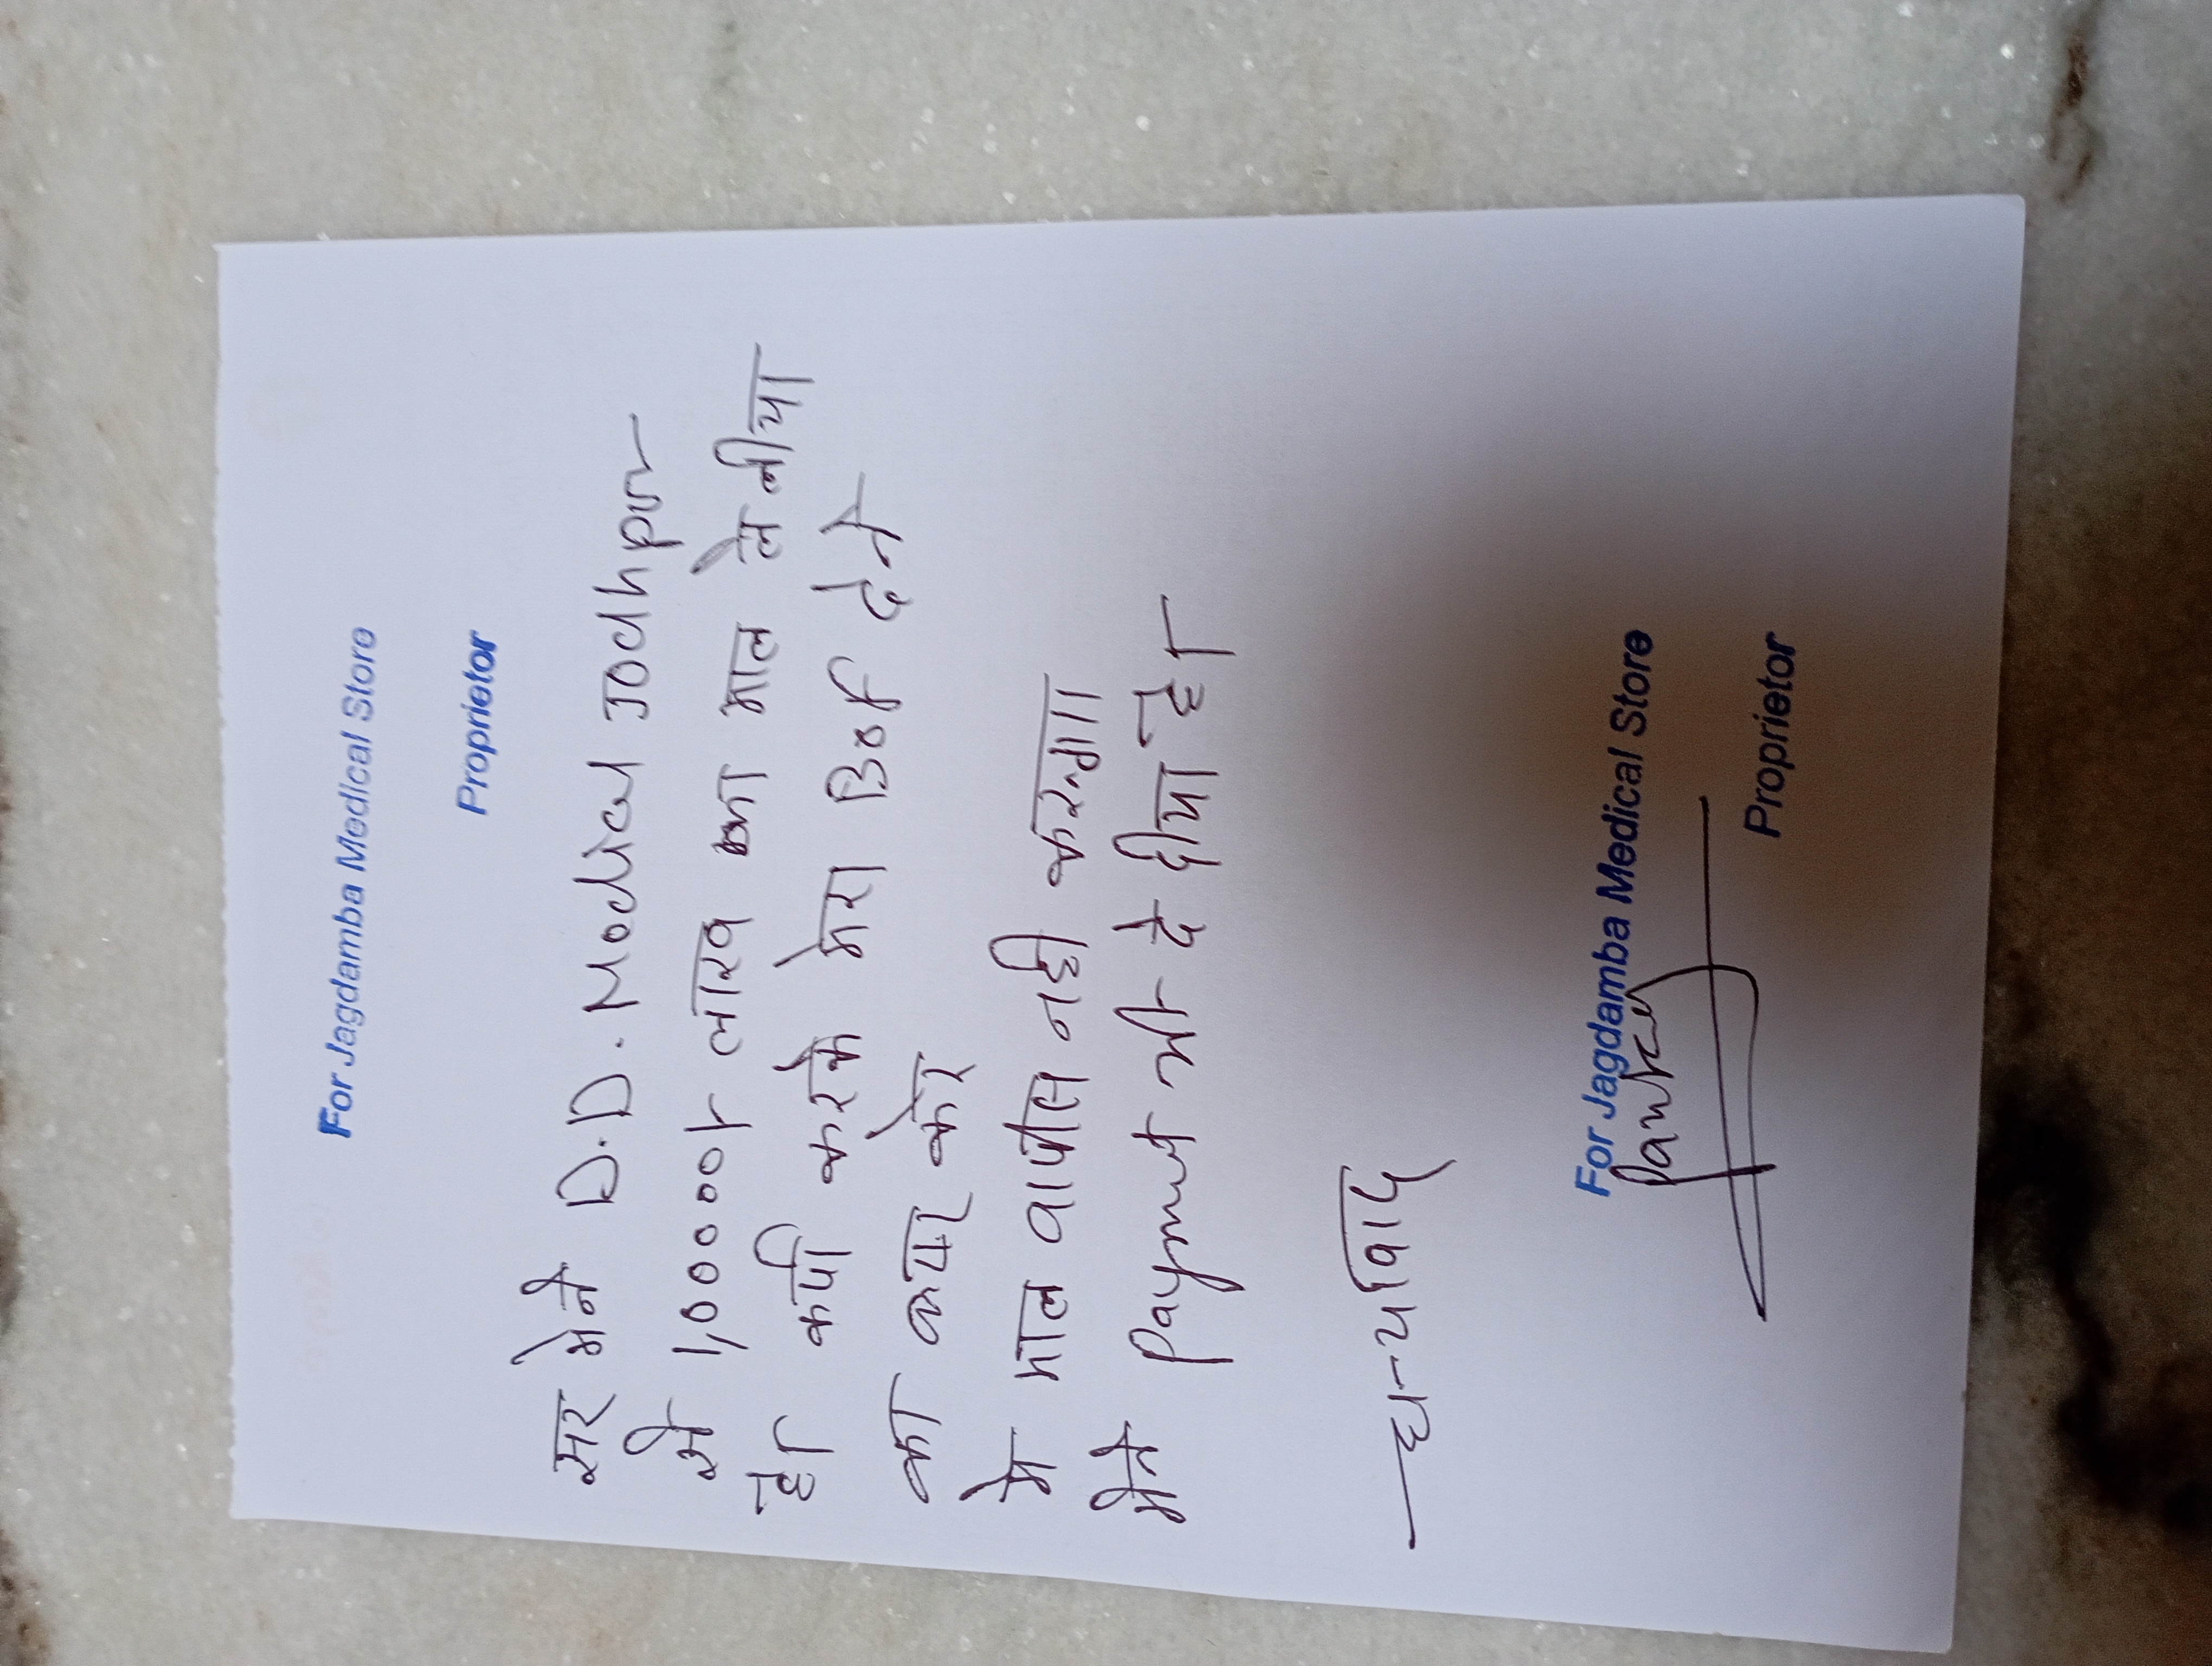 For Jagdamba Medical Store
Proprietor
सर मेने D.D. Medical Jodhpur
मे 1,00000/- लाख का माल ले लीया
है। कर्पा करके मेरा Bof देने
का कर्पा करे
मे माल वापीस नही करूगा।
मेने Payment भी दे दीया है।
धन्यवाद
For Jagdamba Medical Store
Pankaj
Proprietor